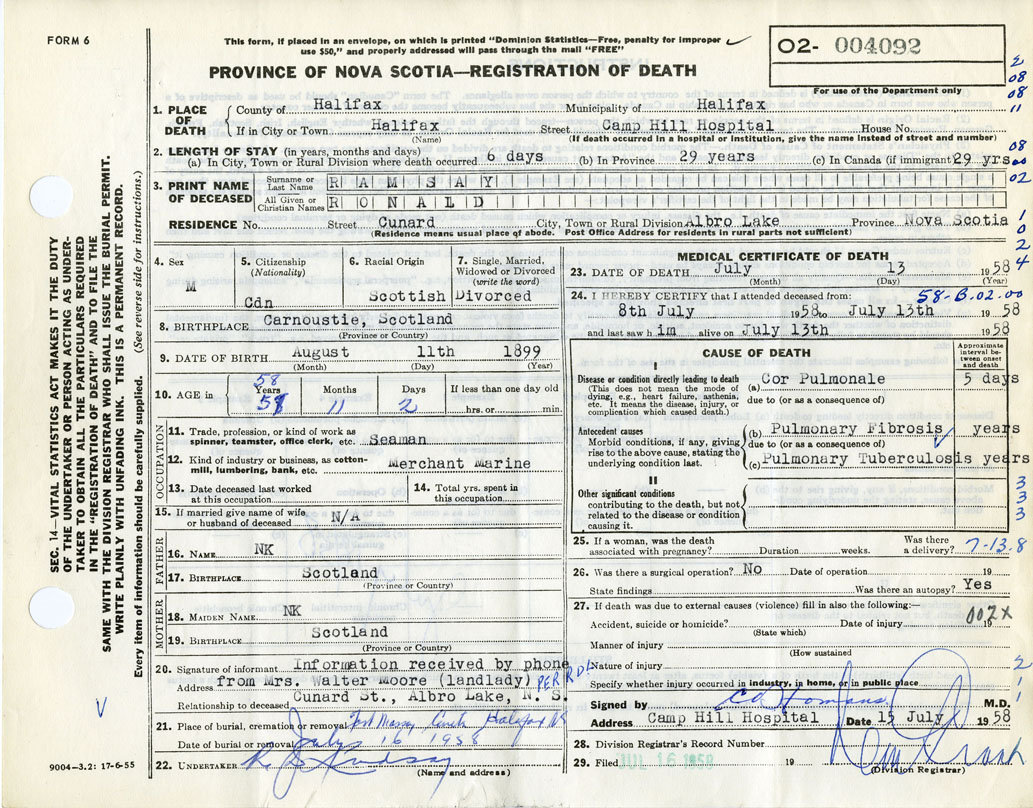 FORM 6
This form, if placed in an envelope, on which is printed "Dominion Statistics—Free, penalty for improper
use $50," and properly addressed will pass through the mail "FREE"
O2- 004092
For use of the Department only
PROVINCE OF NOVA SCOTIA—REGISTRATION OF DEATH
1. PLACE OF DEATH
County of Halifax Municipality of Halifax
If in City or Town Halifax Street Camp Hill Hospital House No.
(Name) (If death occurred in a Hospital or Institution, give the name instead of street and number)
2. LENGTH OF STAY (in years, months and days)
(a) In City, Town or Rural Division where death occurred 6 days (b) In Province 29 years (c) In Canada (if immigrant) 29 yrs
3. PRINT NAME OF DECEASED
Surname or Last Name RAMSAY
All Given or Christian Names RONALD
RESIDENCE No. Street Cunard City, Town or Rural Division Albro Lake Province Nova Scotia
(Residence means usual place of abode. Post Office Address for residents in rural parts not sufficient)
4. Sex
M
5. Citizenship
(Nationality)
Cdn
6. Racial Origin
Scottish
7. Single, Married,
Widowed or Divorced
(write the word)
Divorced
8. BIRTHPLACE Carnoustie, Scotland
(Province or Country)
9. DATE OF BIRTH August 11th 1899
(Month) (Day) (Year)
10. AGE in
Years Months Days If less than one day old
58 11 2 hrs. or min.
OCCUPATION
11. Trade, profession or kind of work as
spinner, teamster, office clerk, etc. Seaman
12. Kind of industry or business, as cotton-
mill, lumbering, bank, etc. Merchant Marine
13. Date deceased last worked
at this occupation
14. Total yrs. spent in
this occupation
15. If married give name of wife
or husband of deceased N/A
FATHER
16. NAME NK
17. BIRTHPLACE Scotland
(Province or Country)
MOTHER
18. MAIDEN NAME NK
19. BIRTHPLACE Scotland
(Province or Country)
20. Signature of informant Information received by phone
Address from Mrs. Walter Moore (landlady) PER RD!
Relationship to deceased Cunard St., Albro Lake, N. S.
21. Place of burial, cremation or removal Fort Massey Halifax NS
Date of burial or removal July 16 1958
22. UNDERTAKER Lindsay
(Name and address)
MEDICAL CERTIFICATE OF DEATH
23. DATE OF DEATH July 13 1958
(Month) (Day) (Year)
24. I HEREBY CERTIFY that I attended deceased from: 58-B.02.00
8th July 1958 to July 13th 1958
and last saw him alive on July 13th 1958
CAUSE OF DEATH
Approximate
interval be-
tween onset
and death
I
Disease or condition directly leading to death
(This does not mean the mode of
dying, e.g., heart failure, asthenia,
etc. It means the disease, injury, or
complication which caused death.)
(a) Cor Pulmonale 5 days
due to (or as a consequence of)
Antecedent causes
Morbid conditions, if any, giving
rise to the above cause, stating the
underlying condition last.
(b) Pulmonary Fibrosis years
due to (or as a consequence of)
(c) Pulmonary Tuberculosis years
II
Other significant conditions
contributing to the death, but not
related to the disease or condition
causing it.
3
3
3
25. If a woman, was the death
associated with pregnancy? Duration weeks. Was there
a delivery? 7-13-8
26. Was there a surgical operation? No Date of operation 19
State findings Was there an autopsy? Yes
27. If death was due to external causes (violence) fill in also the following:—
002x
Accident, suicide or homicide? Date of injury 19
(State which)
Manner of injury
(How sustained
Nature of injury
Specify whether injury occurred in industry, in home, or in public place
Signed by M.D.
Address Camp Hill Hospital Date 15 July 1958
28. Division Registrar's Record Number
29. Filed JUL 16 1958 19
(Division Registrar)
SEC. 14—VITAL STATISTICS ACT MAKES IT THE DUTY
OF THE UNDERTAKER OR PERSON ACTING AS UNDER-
TAKER TO OBTAIN ALL THE PARTICULARS REQUIRED
IN THE "REGISTRATION OF DEATH" AND TO FILE THE
SAME WITH THE DIVISION REGISTRAR WHO SHALL ISSUE THE BURIAL PERMIT.
WRITE PLAINLY WITH UNFADING INK. THIS IS A PERMANENT RECORD.
Every item of information should be carefully supplied. (See reverse side for instructions.)
9004-3.2: 17-6-55
2
08
08
11
08
00
02
1
0
2
4
2
1
1